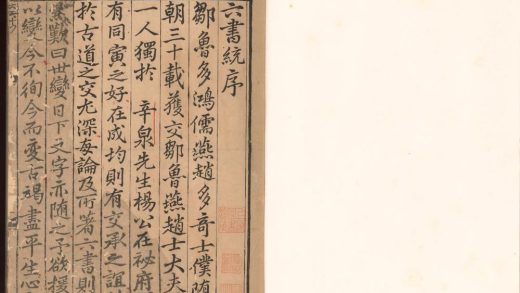 六書統序
鄒魯多鴻儒燕趙多竒士僕
朝三十載獲交鄒魯燕趙士大夫
一人獨於 辛泉先生楊公在祕府
有同寅之好在成均則有交承之誼
於古道之交尤深每論及所著六書則
歎曰世變日下文字亦随之予欲援
以變今不徇今而愛古竭盡平生心